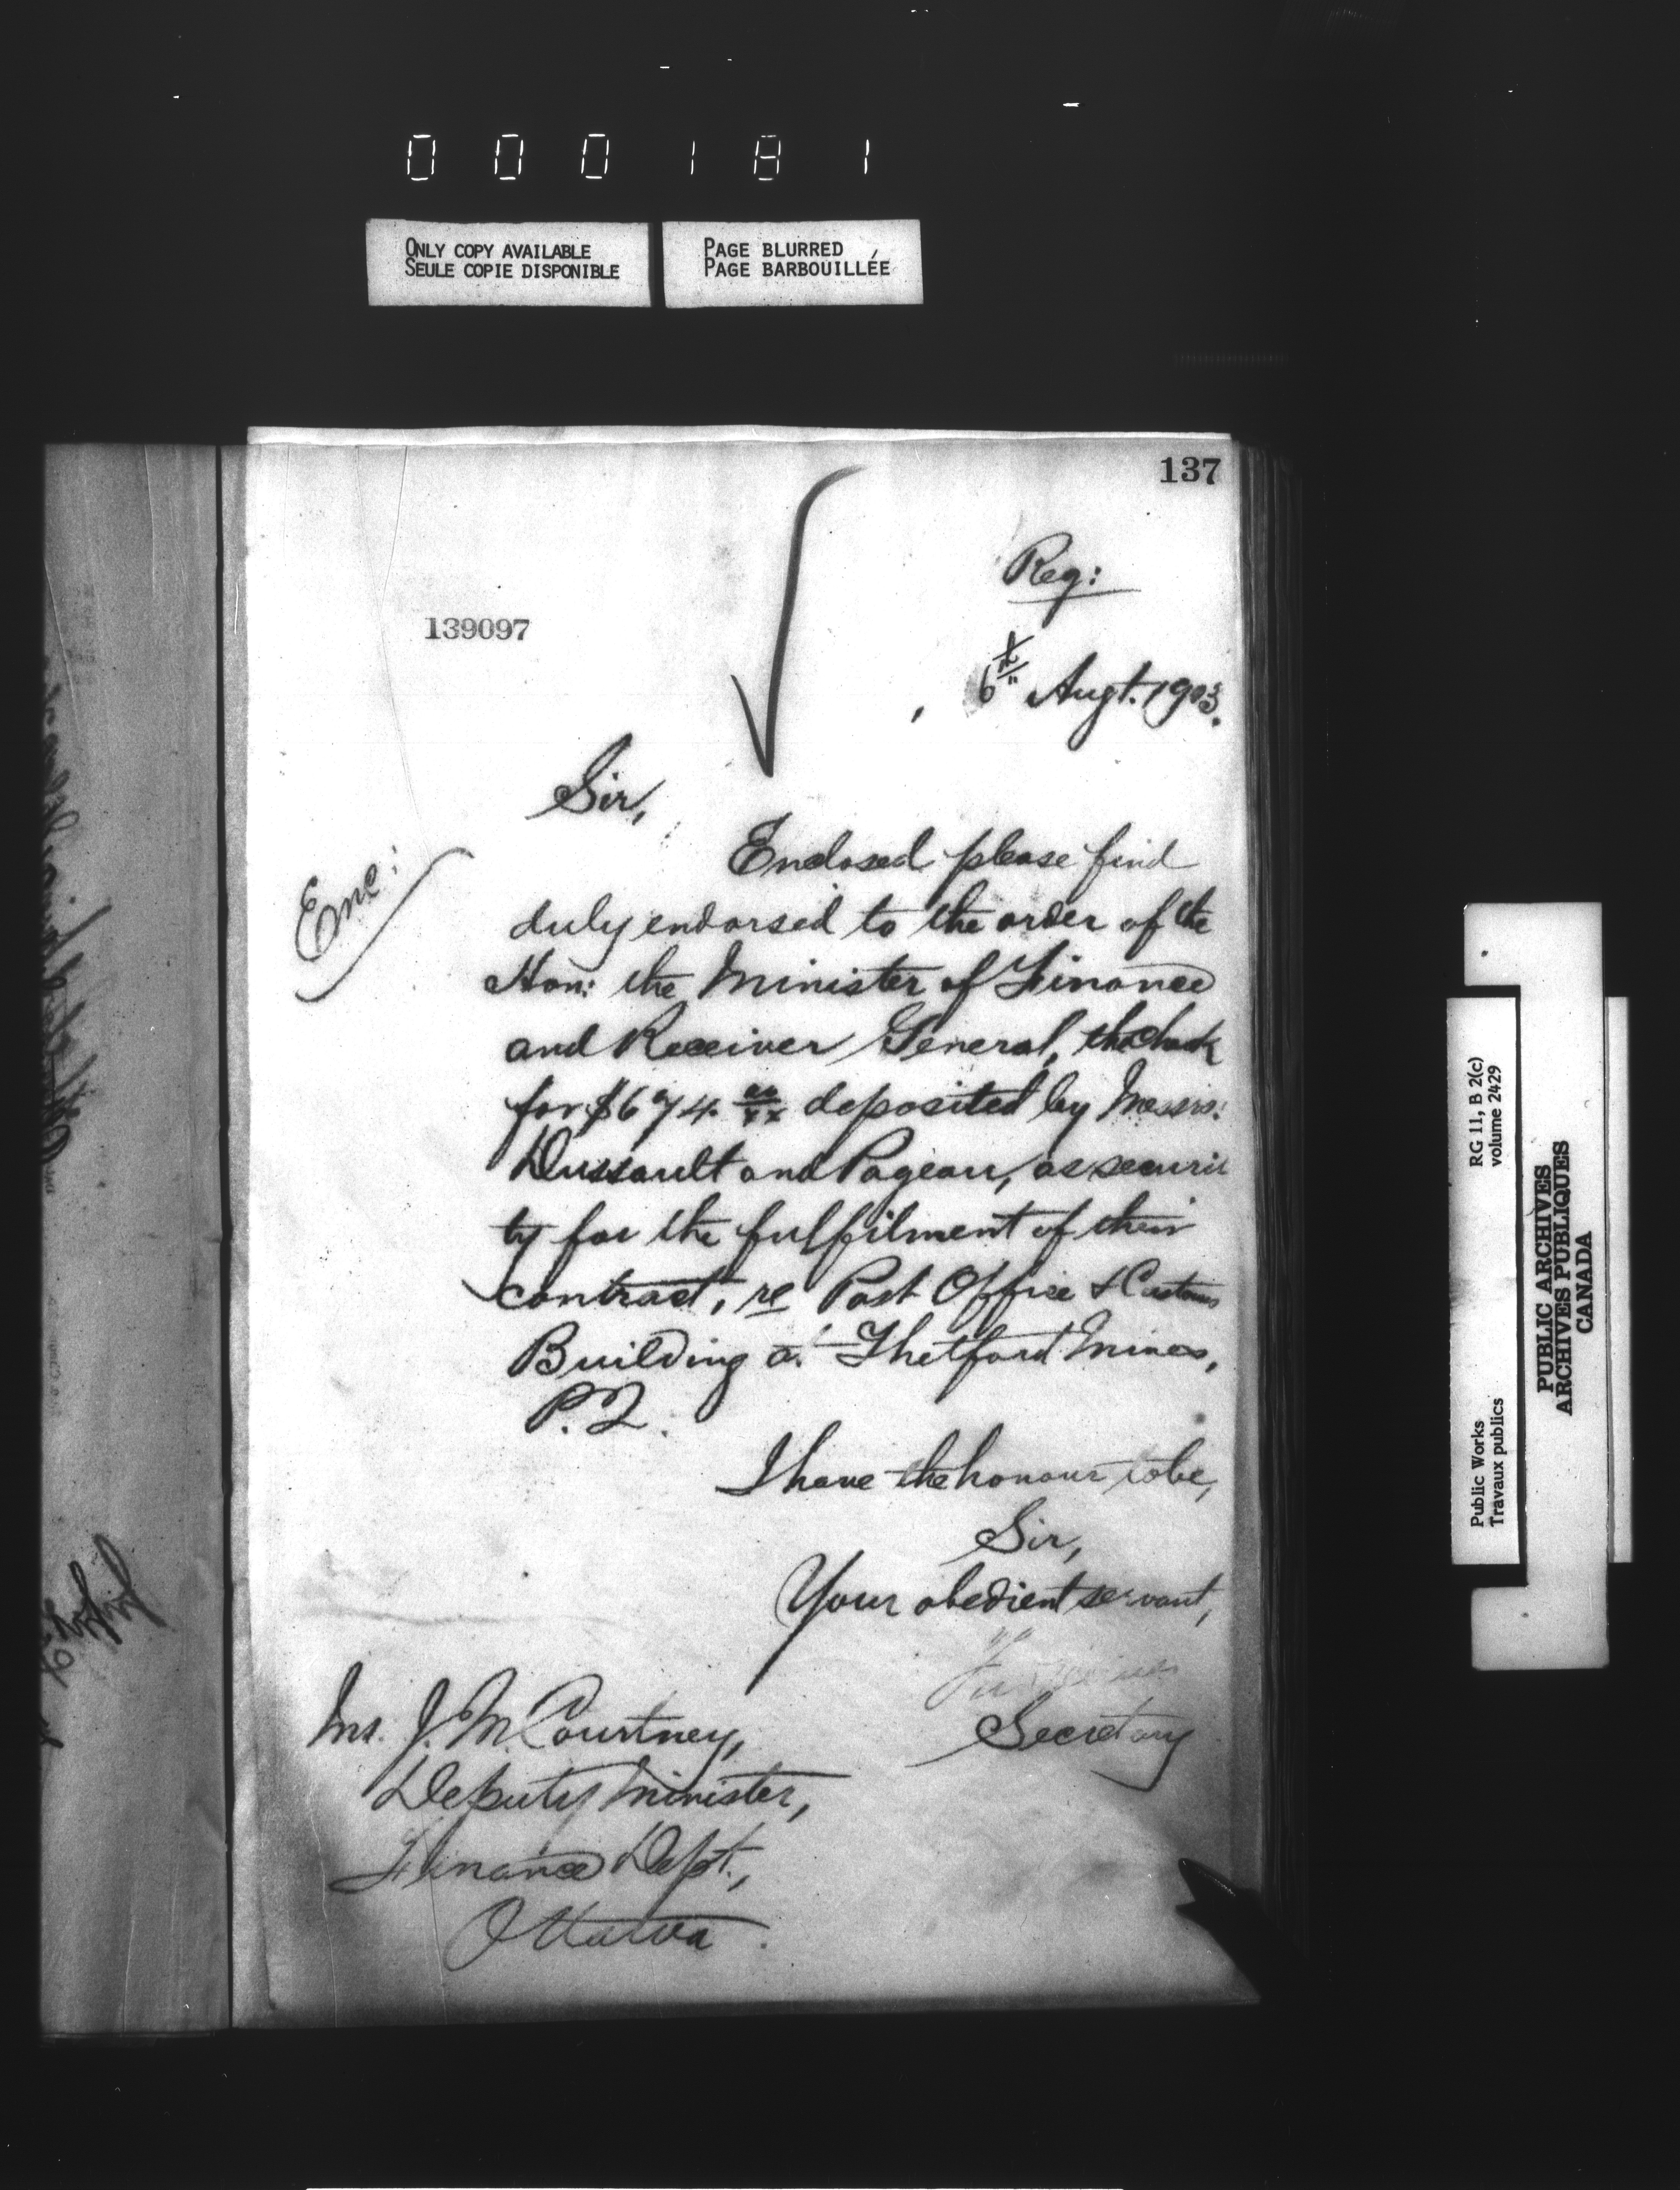 000181
ONLY COPY AVAILABLE
SEULE COPIE DISPONIBLE
PAGE BLURRED
PAGE BARBOUILLÉE
137
Reg:
139097
6th Augt. 1903.
Sir,
Enc:
Enclosed please find
duly endorsed to the order of the
Hon: the Minister of Finance
and Receiver General, the
for $674. deposited by Messrs:
Dussault and Pageau, as securi
ty for the fulfilment of their
contract, re Post Office & Customs
Building at Thetford Mines,
P.Q.
I have the honour to be,
Sir,
Your obedient servant,
Secretary
Mr. J. M. Courtney,
Deputy Minister,
Finance Dept.,
Ottawa.
Public Works
Travaux publics
RG 11, B 2(c)
volume 2429
PUBLIC ARCHIVES
ARCHIVES PUBLIQUES
CANADA